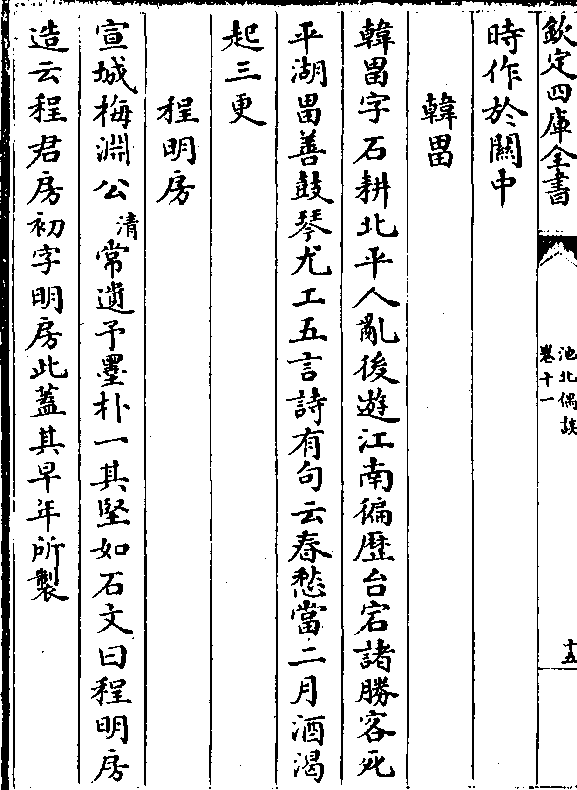 欽定四庫全書
池北偶談
卷十一
十五
時作於關中
韓畕
韓畕字石耕北平人亂後遊江南徧歷台宕諸勝客死
平湖畕善鼓琴尤工五言詩有句云春愁當二月酒渴
起三更
程明房
宣城梅淵公清常遺予墨朴一其堅如石文曰程明房
造云程君房初字明房此蓋其早年所製